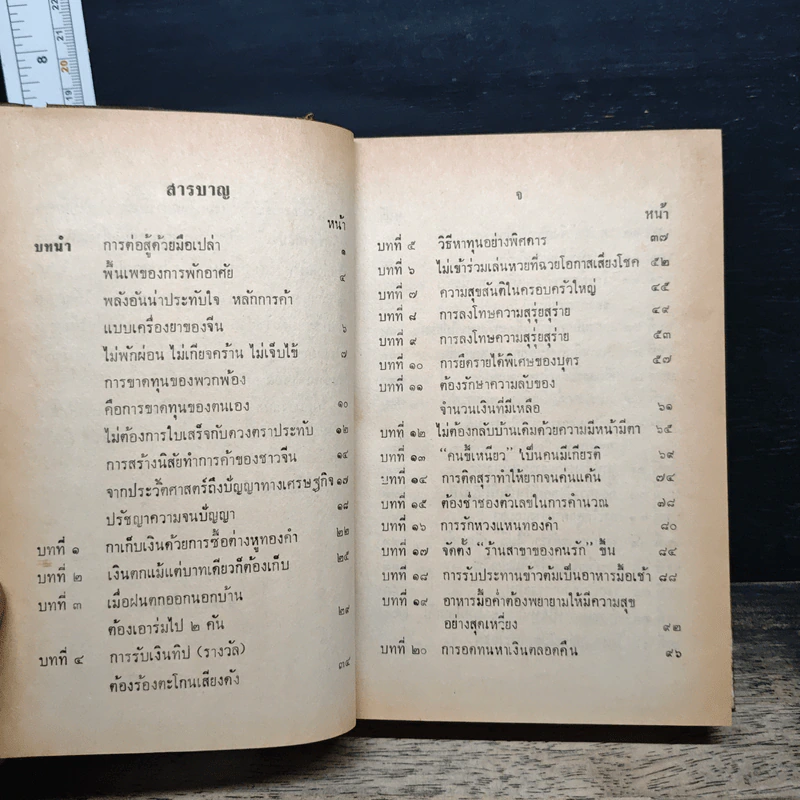 8
22
21
20
19
สารบาญ
หน้า
บทนำ การต่อสู้ด้วยมือเปล่า ๑
พื้นเพของการพักอาศัย ๔
พลังอันน่าประทับใจ หลักการค้า
แบบเครื่องยาของจีน ๖
ไม่พักผ่อน ไม่เกียจคร้าน ไม่เจ็บไข้ ๗
การขาดทุนของพวกพ้อง
คือการขาดทุนของตนเอง ๑๐
ไม่ต้องการใบเสร็จกับดวงตราประทับ ๑๒
การสร้างนิสัยทำการค้าของชาวจีน ๑๔
จากประวัติศาสตร์ถึงปัญญาทางเศรษฐกิจ ๑๗
ปรัชญาความจนปัญญา ๑๘
บทที่ ๑ กาเก็บเงินด้วยการซื้อต่างหูทองคำ ๒๒
บทที่ ๒ เงินตกแม้แต่บาทเดียวก็ต้องเก็บ ๒๕
บทที่ ๓ เมื่อฝนตกออกนอกบ้าน
ต้องเอาร่มไป ๒ คัน ๒๙
บทที่ ๔ การรับเงินทิป (รางวัล)
ต้องร้องตะโกนเสียงดัง ๓๔
จ
หน้า
บทที่ ๕ วิธีหาทุนอย่างพิศดาร ๓๗
บทที่ ๖ ไม่เข้าร่วมเล่นหวยที่ฉวยโอกาสเสี่ยงโชค ๔๒
บทที่ ๗ ความสุขสันติในครอบครัวใหญ่ ๔๕
บทที่ ๘ การลงโทษความสุรุ่ยสุร่าย ๔๙
บทที่ ๙ การลงโทษความสุรุ่ยสุร่าย ๕๓
บทที่ ๑๐ การยึดรายได้พิเศษของบุตร ๕๗
บทที่ ๑๑ ต้องรักษาความลับของ
จำนวนเงินที่มีเหลือ ๖๑
บทที่ ๑๒ ไม่ต้องกลับบ้านเดิมด้วยความมีหน้ามีตา ๖๕
บทที่ ๑๓ “คนขี้เหนียว” เป็นคนมีเกียรติ ๖๙
บทที่ ๑๔ การติดสุราทำให้ยากจนค่นแค้น ๗๔
บทที่ ๑๕ ต้องช่ำชองตัวเลขในการคำนวณ ๗๘
บทที่ ๑๖ การรักหวงแหนทองคำ ๘๐
บทที่ ๑๗ จัดตั้ง “ร้านสาขาของคนรัก” ขึ้น ๘๔
บทที่ ๑๘ การรับประทานข้าวต้มเป็นอาหารมื้อเช้า ๘๘
บทที่ ๑๙ อาหารมื้อค่ำต้องพยายามให้มีความสุข
อย่างสุดเหวี่ยง ๙๒
บทที่ ๒๐ การอดทนหาเงินตลอดคืน ๙๖